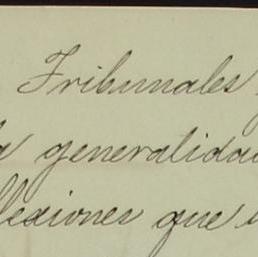 Tribunales
generalidad
flexiones que